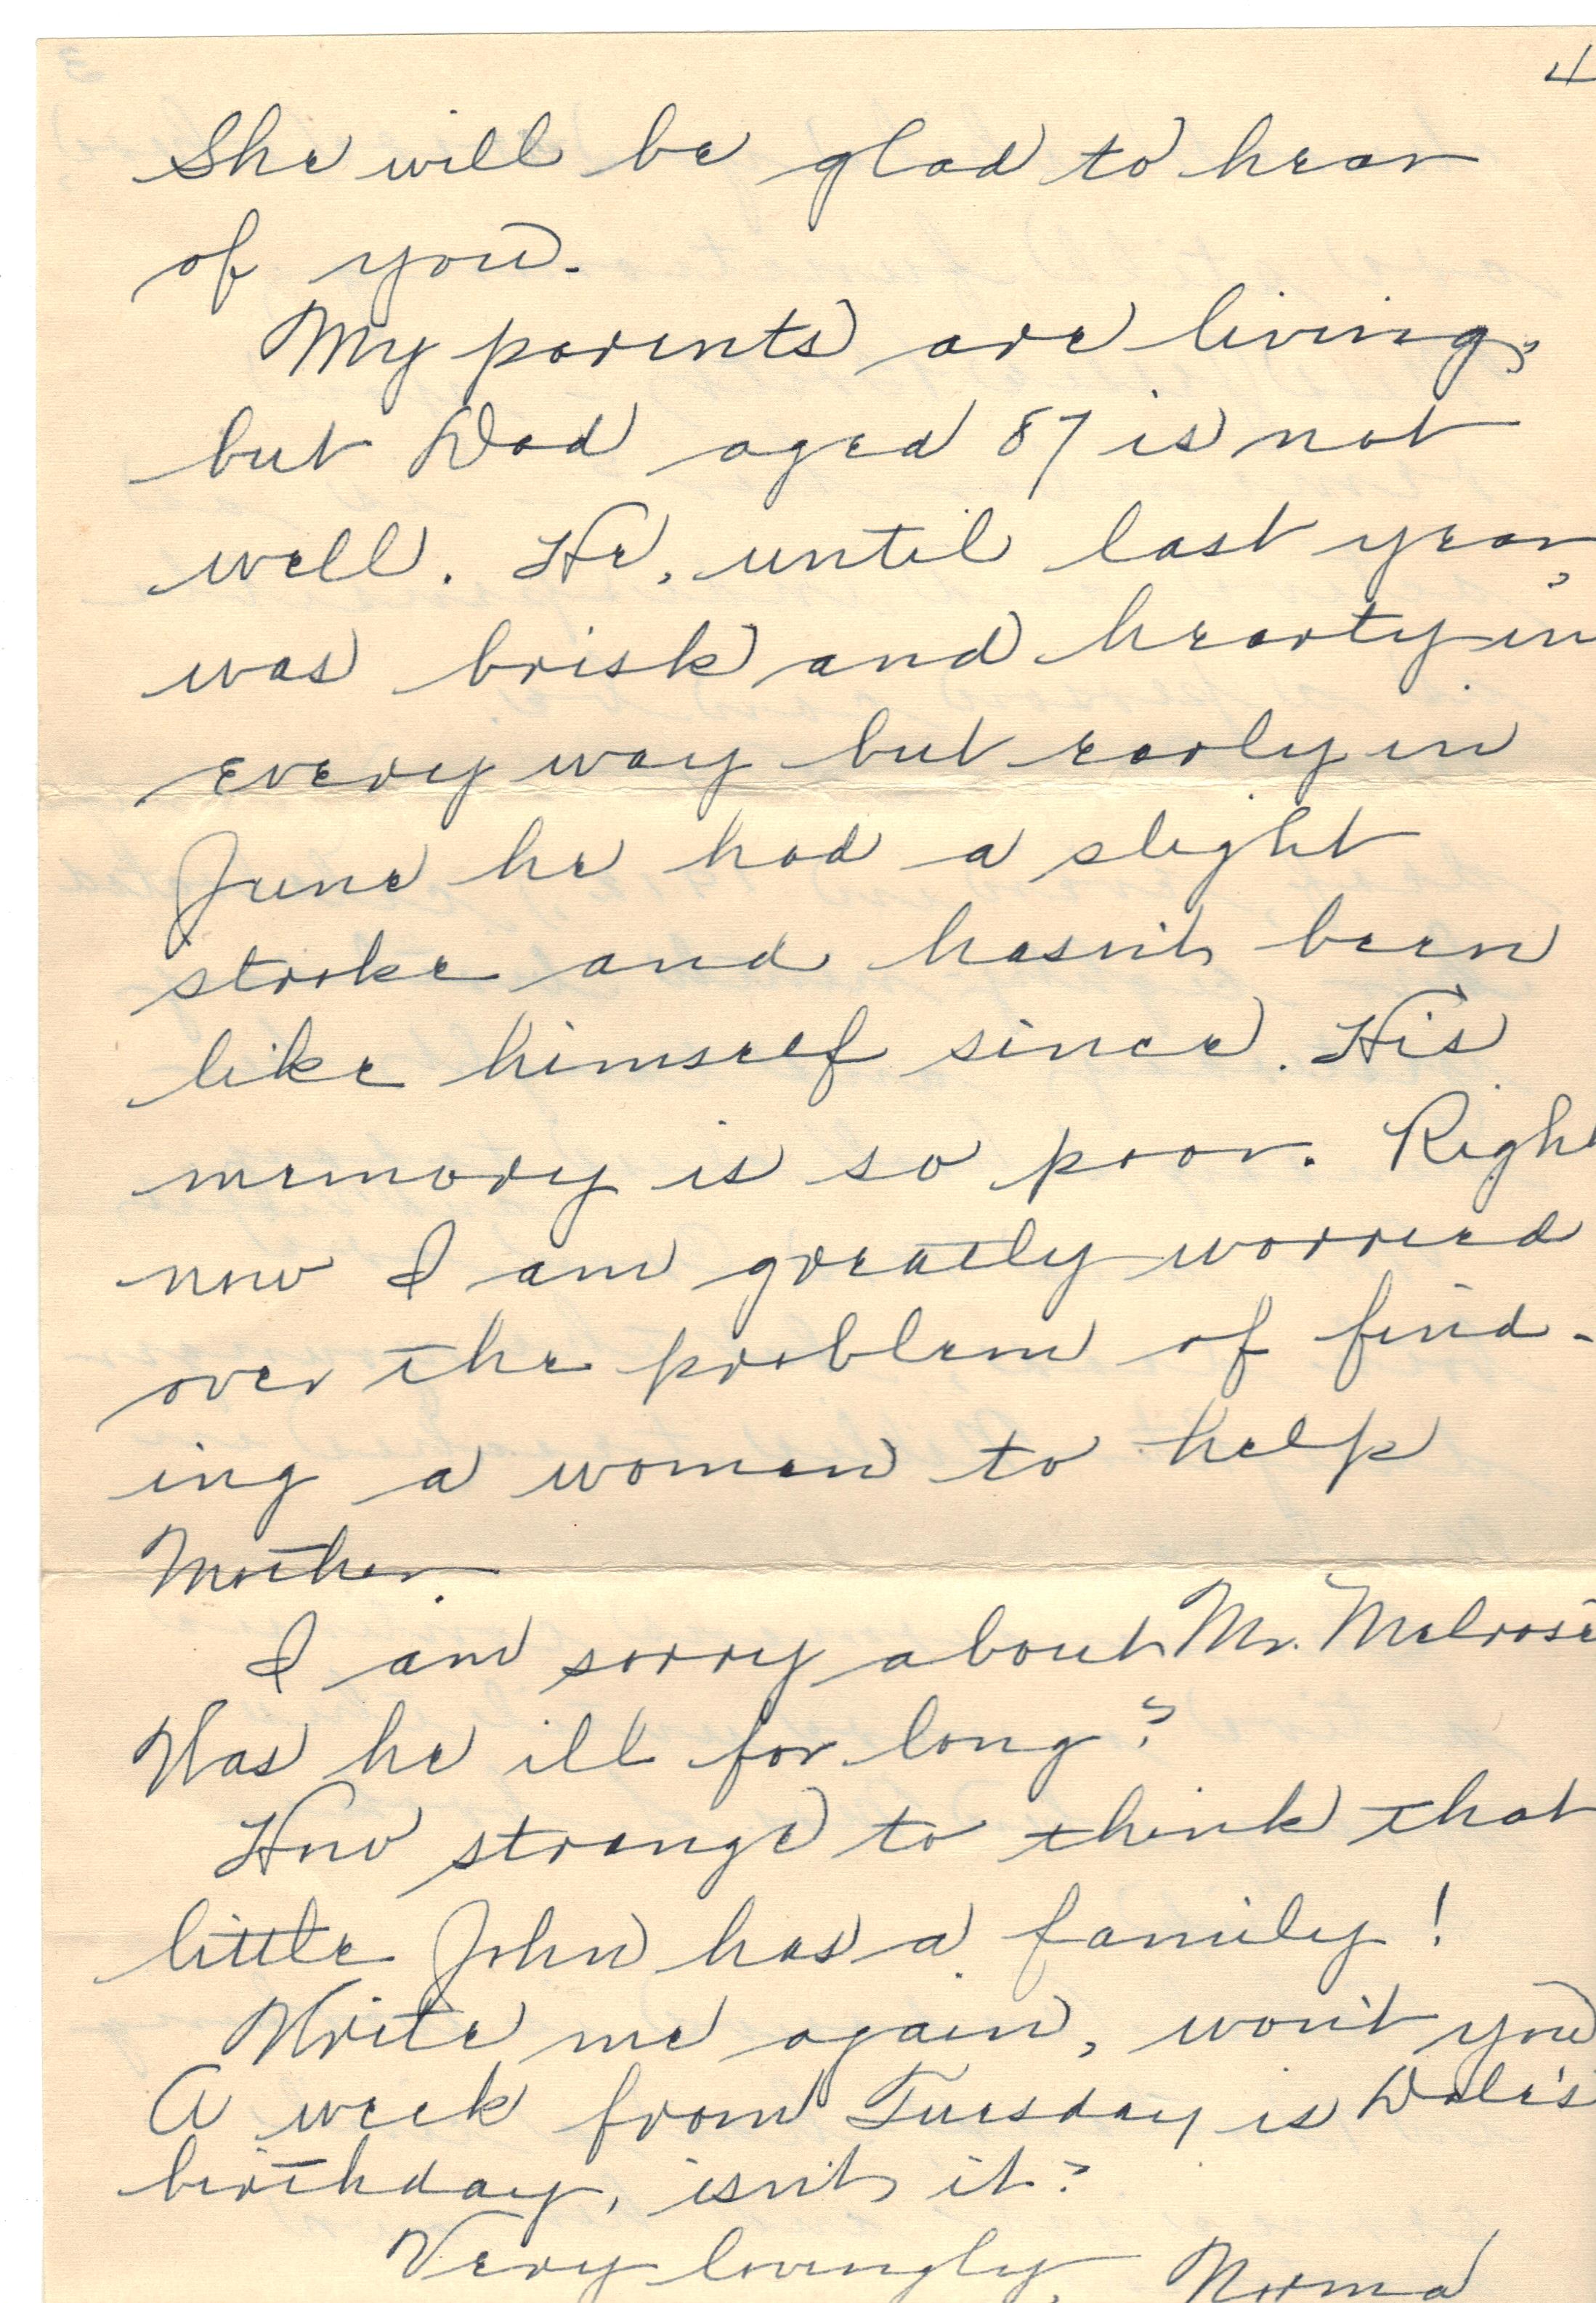 4
She will be glad to hear
of you.
My parents are living,
but Dad aged 87 is not
well. He, until last year,
was brisk and hearty in
every way but early in
June he had a slight
stroke and hasn't been
like himself since. His
memory is so poor. Righ
now I am greatly worried
over the problem of find-
ing a woman to help
Mother.
I am sorry about Mr. Melrose
Was he ill for long?
How strange to think that
little John has a family!
Write me again, won't you
A week from Tuesday is Dale's
birthday, isn't it?
Very lovingly, Norma